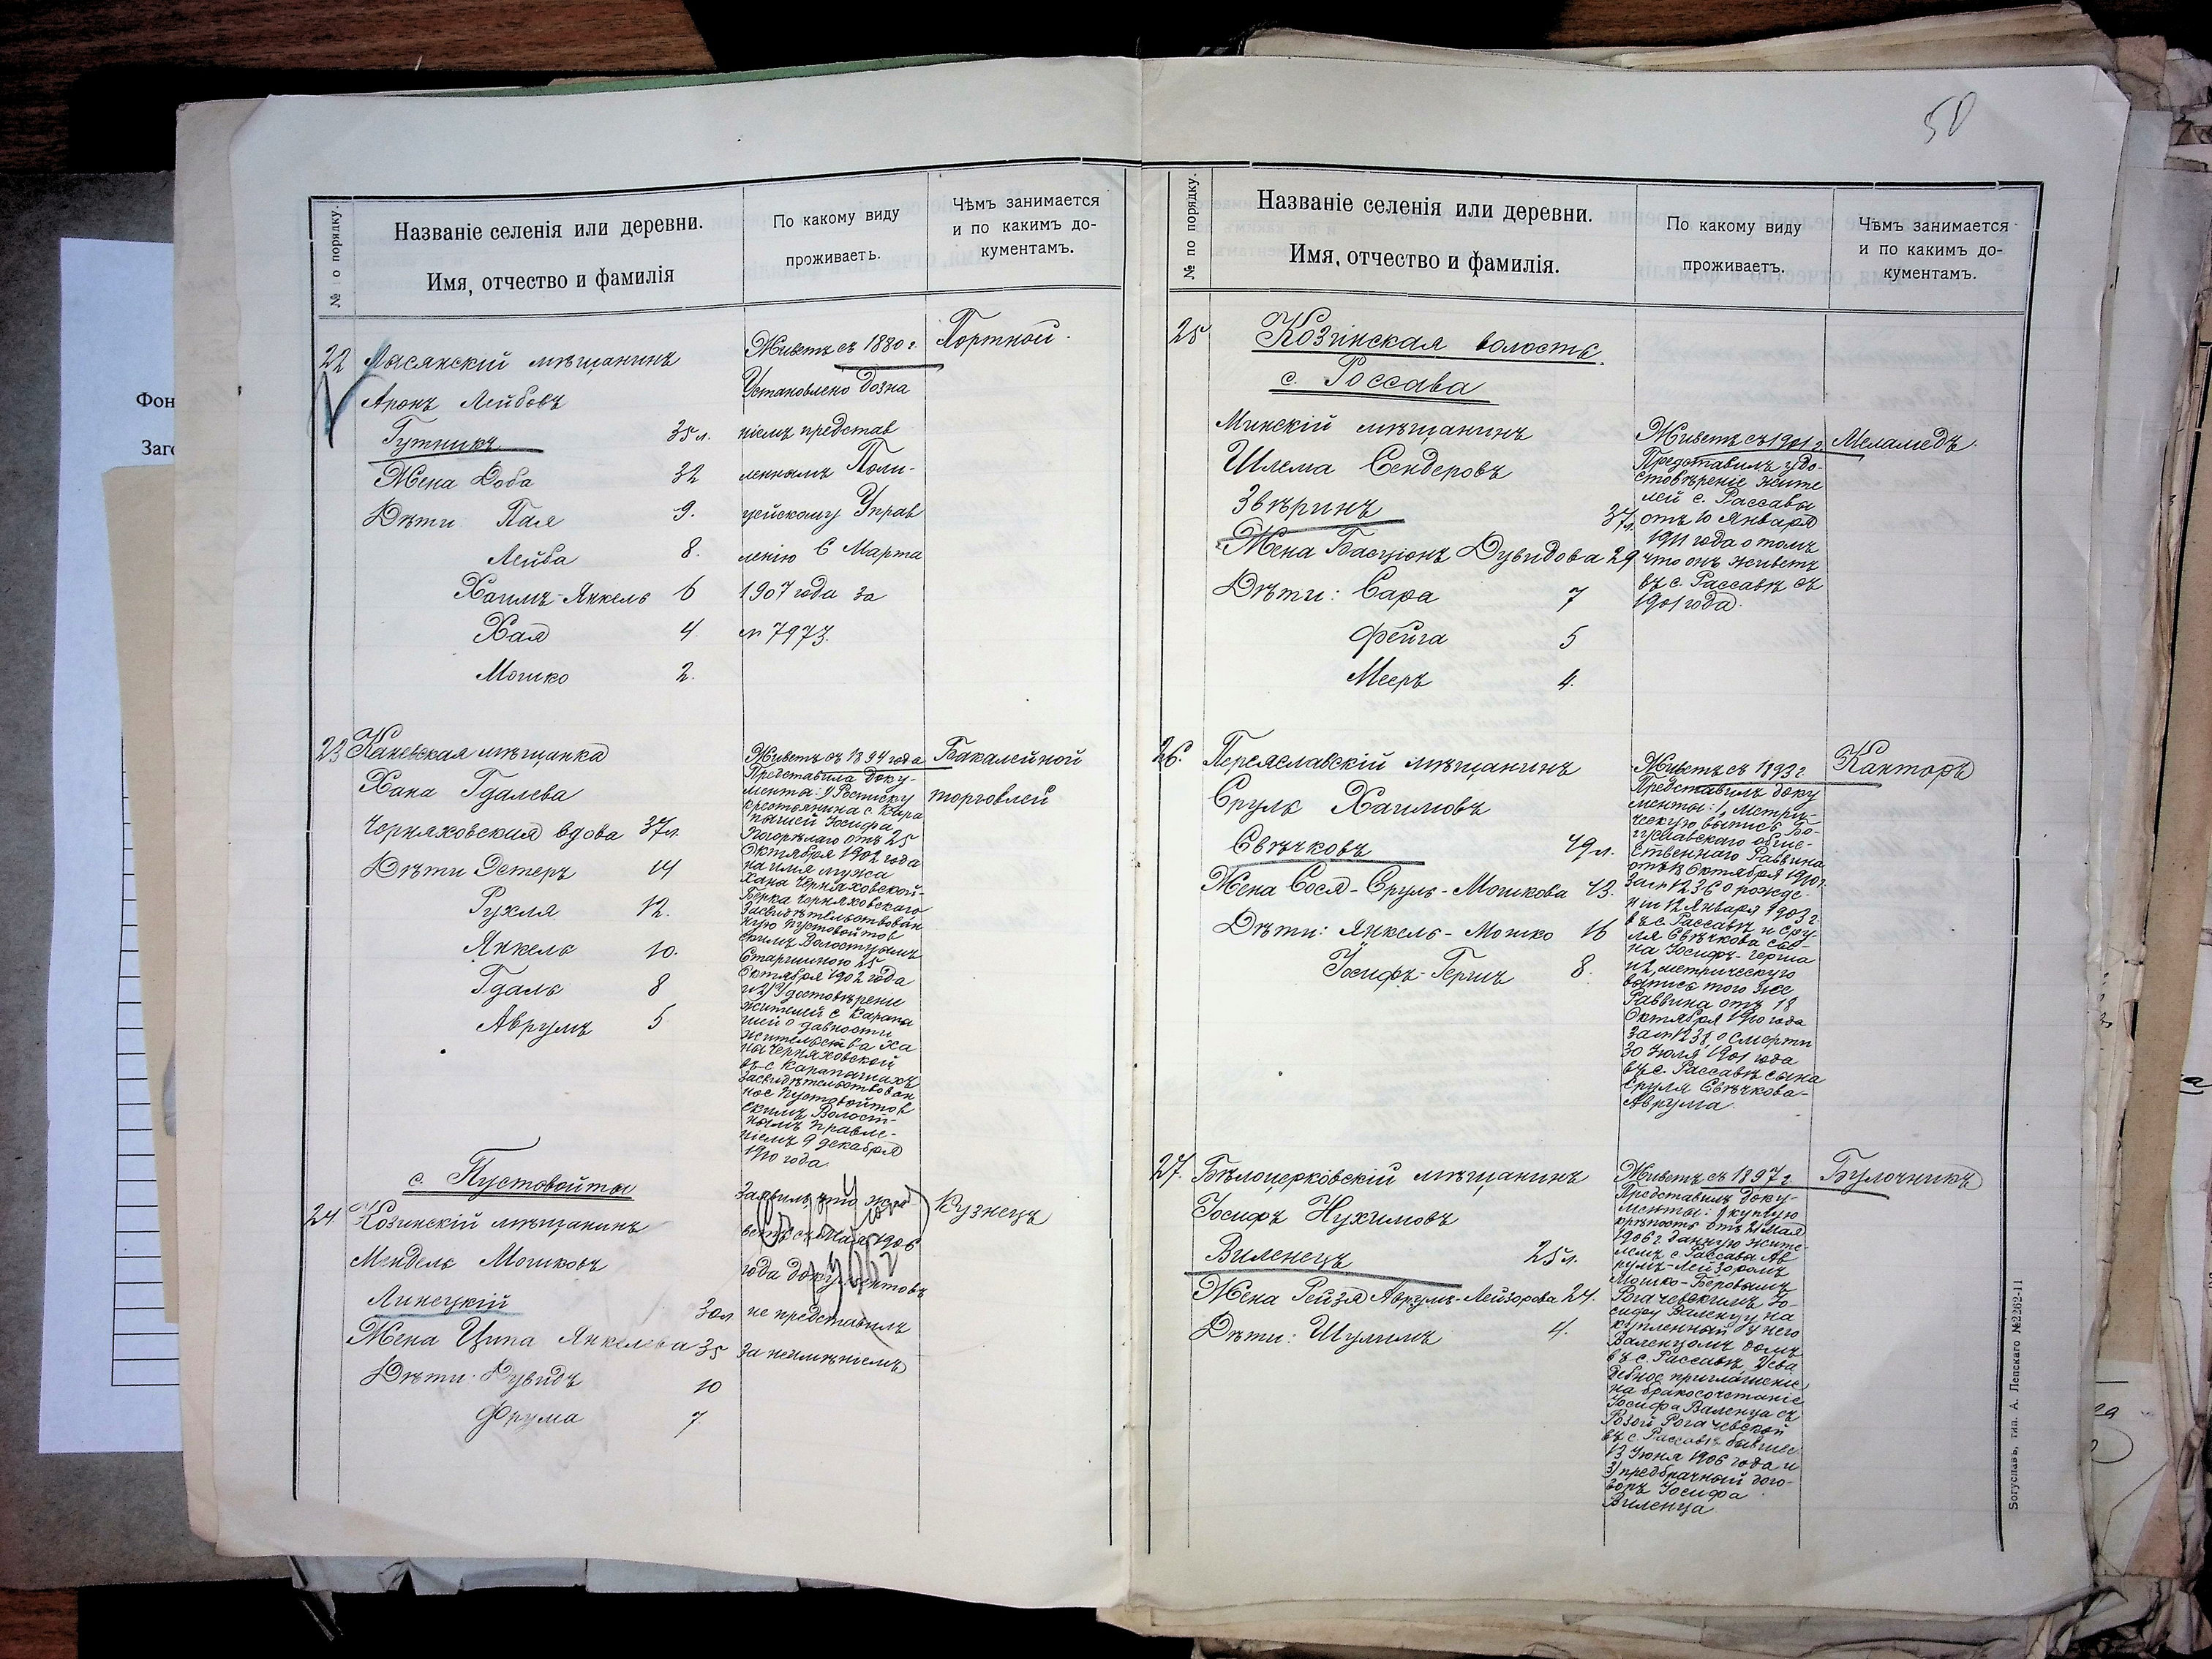 Фон
Заго
№ по порядку.
Названіе селенія или деревни.
Имя, отчество и фамилія
По какому виду
проживаетъ.
Чѣмъ занимается
и по какимъ до-
кументамъ.
22 Лысянскій мѣщанинъ
Аронъ Лейбовъ
Гутникъ 35 л.
Жена Доба 32
Дѣти Пая 9.
Лейба 8.
Хаимъ-Янкель 6
Хая 4.
Мошко 2.
Живетъ съ 1880 г.
Установлено дозна
ніемъ представ
леннымъ Поли-
цейскому Управ
ленію 6 Марта
1907 года за
№ 7973.
Портной.
23 Каневская мѣщанка
Хана Гдалева
Черняховская вдова 37 л.
Дѣти Эстеръ 14
Рухля 12.
Янкель 10.
Гдаль 8
Аврумъ 5
Живетъ съ 1894 года
Представила доку-
менты: 1) Росписку
крестьянина с. Кара
пышей Іосифа
Погорѣлаго отъ 25
Октября 1902 года
на имя мужа
Ханы Черняховской-
Берка Черняховскаго
Засвидѣтельствован
ную Пустовойтов
скимъ Волостнымъ
Старшиною 25
Октября 1902 года
и 2) Удостовѣреніе
жителей с. Карапы
шей о давности
жительства Ха
ны Черняховской
въ с. Карапышахъ
Засвидѣтельствован
ное Пустовойтов
скимъ Волост-
нымъ Правле-
ніемъ 9 декабря
1910 года.
Бакалейной
торговлей
с. Пустовойты
24 Козинскій мѣщанинъ
Мендель Мошковъ
Линецкій 30 л
Жена Ципа Янкелева 35
Дѣти: Дувидъ 10
Фрума 7.
Заявилъ, что жи
ветъ съ Мая 1906
года документовъ
не представилъ
за неимѣніемъ
Кузнецъ
50
№ по порядку.
Названіе селенія или деревни.
Имя, отчество и фамилія.
По какому виду
проживаетъ.
Чѣмъ занимается
и по какимъ до-
кументамъ.
25 Козинская волость.
с. Россава
Минскій мѣщанинъ
Шлема Сендеровъ
Звѣринъ 37 л.
Жена Басціонъ Дувидова 29
Дѣти: Сара 7
Фейга 5
Мееръ 4.
Живетъ съ 1901 г.
Представилъ удо-
стовѣреніе жите
лей с. Рассавы
отъ 10 Января
1911 года о томъ
что онъ живетъ
въ с. Рассавѣ съ
1901 года.
Меламедъ.
26. Переяславскій мѣщанинъ
Сруль Хаимовъ
Свѣчковъ 49 л.
Жена Сося-Сруль-Мошкова 43.
Дѣти: Янкель-Мошко 16
Іосифъ-Гершъ 8.
Живетъ съ 1893 г.
Представилъ доку
менты: 1, метри-
ческую выпись Бо-
гуславскаго обще-
ственнаго Раввина
отъ 18 Октября 1910 г.
за № 1236 о рожде
ніи 12 Января 1903 г.
въ с. Рассавѣ и Сру-
ля Свѣчкова сы-
на Іосифъ-Герша
и 2, метрическую
выпись того же
Раввина отъ 18
Октября 1910 года
за № 1238, о смерти
30 Іюля 1901 года
въ с. Рассавѣ сына
Сруля Свѣчкова-
Аврума.
Канторъ
27. Бѣлоцерковскій мѣщанинъ
Іосифъ Нухимовъ
Виленецъ 25 л.
Жена Рейзя Аврумъ-Лейзорова 24.
Дѣти: Шулимъ 4.
Живетъ съ 1897 г.
Представилъ доку-
менты: 1 купчую
крѣпость отъ 21 Мая
1906 г. данную жите-
лемъ с. Рассавы Ав
румъ-Лейзоромъ
Мошко-Беровымъ
Рогачевскимъ Іо-
сифу Валенцу на
купленный у него
Валенцомъ домъ
въ с. Рассавѣ, 2 сва
дебное приглашеніе
на бракосочетаніе
Іосифа Валенца съ
Розой Рогачевской
въ с. Рассавѣ бывшее
13 Іюня 1906 года и
3) предбрачный дого-
воръ Іосифа
Виленца.
Булочникъ
Богуславъ, тип. А. Лепскаго №2262-11